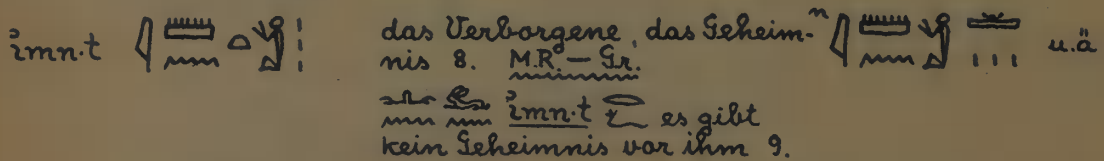 ỉmn·t 𓇋𓏠𓈖𓏏 das Verborgene, das Geheim- n 𓇋𓏠𓈖 u.ä
nis 8. M.R. — Gr.
𓂜𓈖 𓃹𓈖 ỉmn·t 𓂋𓆑 es gibt
kein Geheimnis vor ihm 9.